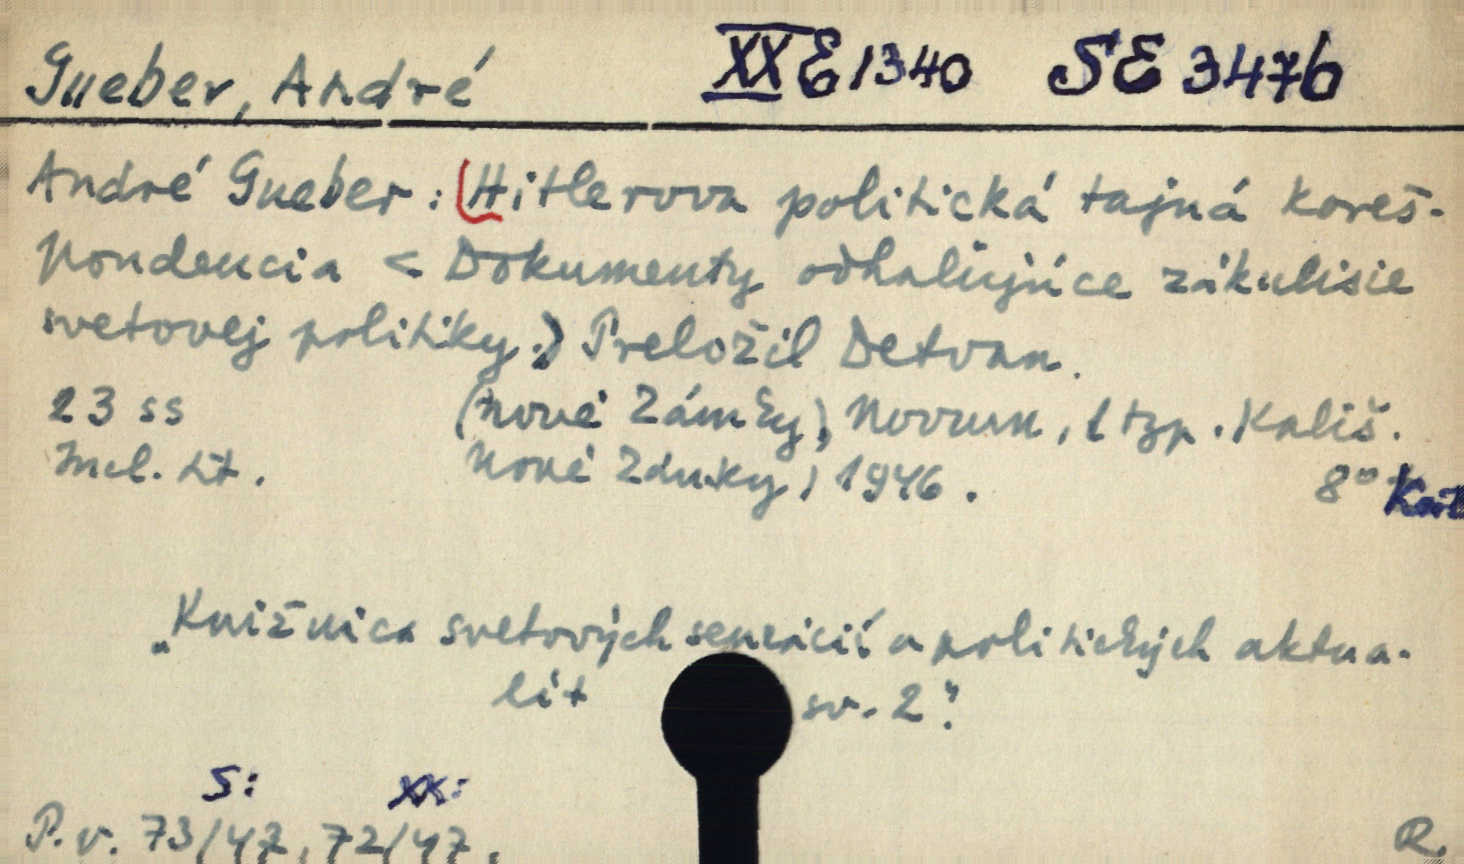 Gueber, André XX E 1340 SE 3476
André Gueber: Hitlerova politická tajná koreš-
pondencia < Dokumenty odhaľujúce zákulisie
svetovej politiky.> Preložil Detvan.
23 ss (Nové Zámky), Novum, (typ. Kališ.
Incl. tit. Nové Zámky, 1946. 8° Kart
„Knižnica svetových senzácií a politických aktua-
lít sv. 2."
S: XX:
P.v. 73/47, 72/47. R.